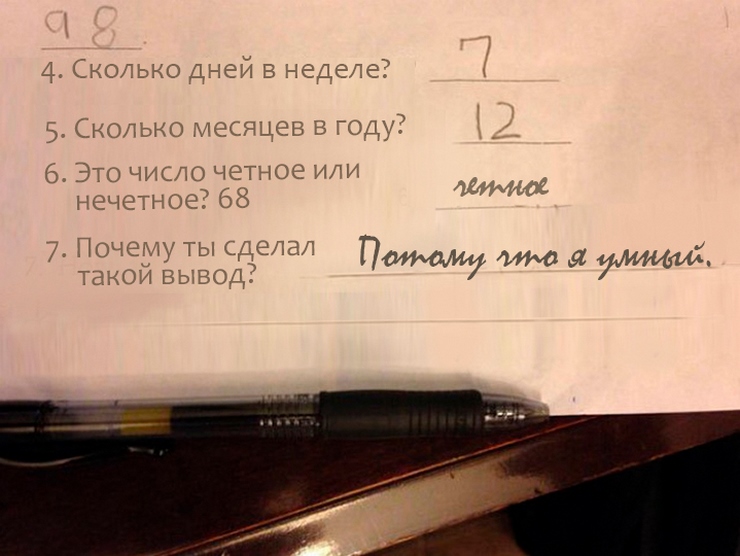 98.
4. Сколько дней в неделе? 7
5. Сколько месяцев в году? 12
6. Это число четное или
нечетное? 68 четное
7. Почему ты сделал Потому что я умный.
такой вывод?